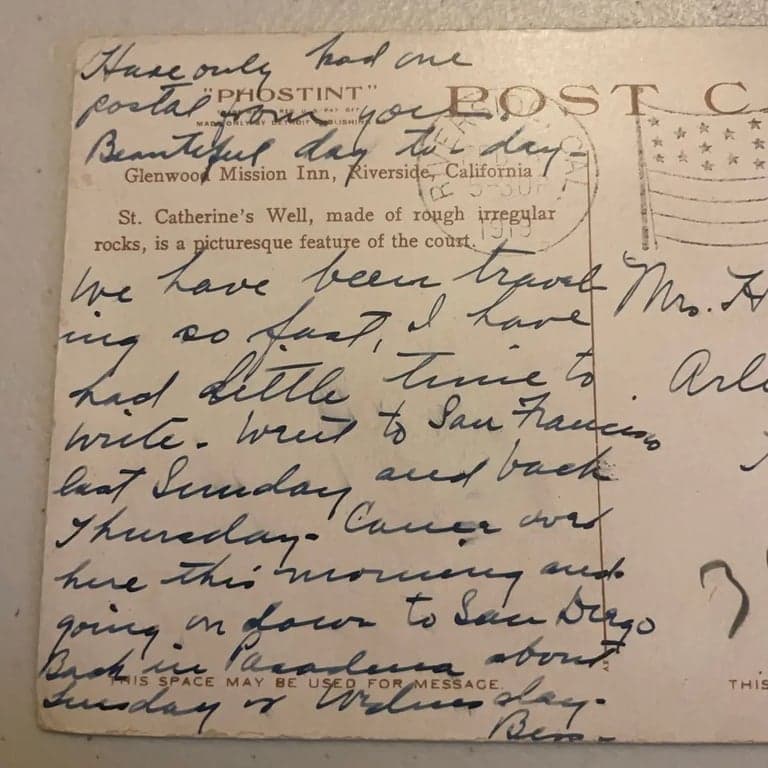 Have only had one
"PHOSTINT"
POST C
postal from you.
MADE ONLY BY DETROIT PUBLISHING
Beautiful day to-day-
RIVERSIDE, CAL.
5-30P
1913
Glenwood Mission Inn, Riverside, California
St. Catherine's Well, made of rough irregular
rocks, is a picturesque feature of the court.
We have been travel
ing so fast, I have
had little time to
write. Went to San Francisco
last Sunday and back
Thursday- Came over
here this morning and
going on down to San Diego
Back in Pasadena about
THIS SPACE MAY BE USED FOR MESSAGE.
Sunday or Wednesday-
Bess-
Mrs. H
Arl
THIS